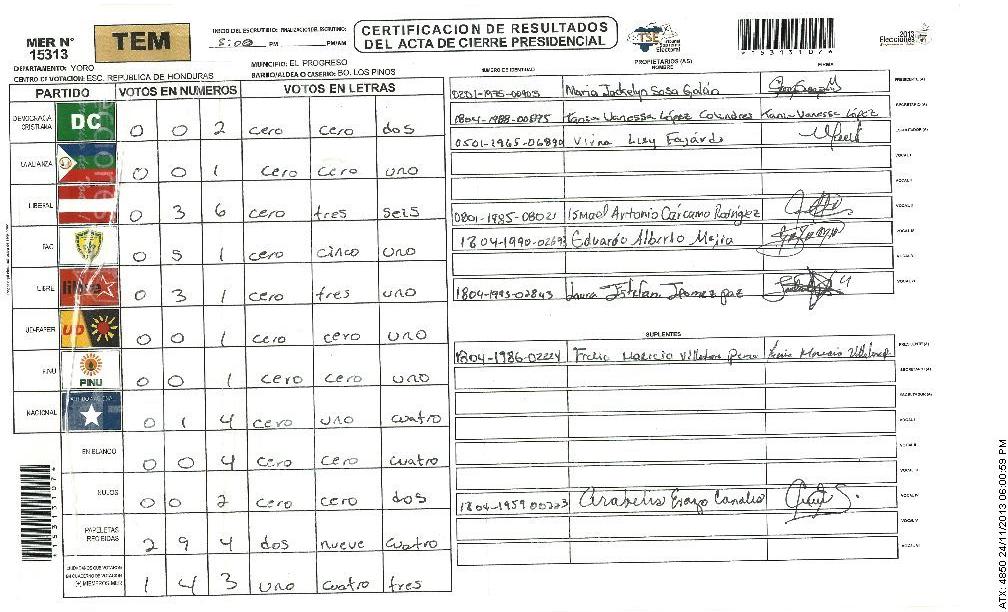 MER N° 15313
TEM
INICIO DEL ESCRUTINIO: FINALIZACION DEL ESCRUTINIO:
5:00 PM PM/AM
CERTIFICACION DE RESULTADOS
DEL ACTA DE CIERRE PRESIDENCIAL
TSE Tribunal Supremo Electoral
2013
Elecciones
DEPARTAMENTO: YORO
MUNICIPIO: EL PROGRESO
CENTRO DE VOTACION: ESC. REPUBLICA DE HONDURAS
BARRIO/ALDEA O CASERIO: BO. LOS PINOS
PARTIDO VOTOS EN NUMEROS VOTOS EN LETRAS
DEMOCRACIA CRISTIANA DC 0 0 2 cero cero dos
LA ALIANZA 0 0 1 cero cero uno
LIBERAL 0 3 6 cero tres seis
PAC 0 5 1 cero cinco uno
LIBRE libre 0 3 1 cero tres uno
UD-FAPER UD 0 0 1 cero cero uno
PINU PINU 0 0 1 cero cero uno
NACIONAL 0 1 4 cero uno cuatro
EN BLANCO 0 0 4 cero cero cuatro
NULOS 0 0 2 cero cero dos
PAPELETAS RECIBIDAS 2 9 4 dos nueve cuatro
CIUDADANOS QUE VOTARON EN CUADERNO DE VOTACION (+) MIEMBROS MER 1 4 3 uno cuatro tres
PROPIETARIOS (AS)
NUMERO DE IDENTIDAD NOMBRE FIRMA
0801-1975-00903 Maria Jackelyn Sosa Galan PRESIDENTE (A)
1804-1988-00875 Kania Vanessa López Colindres Kania Vanessa López SECRETARIO (A)
0501-1965-06890 Vivna Lizy Fajardo ESCRUTADOR (A)
VOCAL I
0801-1985-08021 Ismael Antonio Cárcamo Rodrigez VOCAL II
1804-1990-02693 Eduardo Alberto Mejia VOCAL III
VOCAL IV
1804-1993-02843 VOCAL V
SUPLENTES
1804-1986-02224 PRESIDENTE (A)
SECRETARIO (A)
ESCRUTADOR (A)
VOCAL I
VOCAL II
VOCAL III
1804-1959 00223 VOCAL IV
VOCAL V
VOCAL VI
15313107
ATX: 4850 24/11/2013 06:00:59 PM